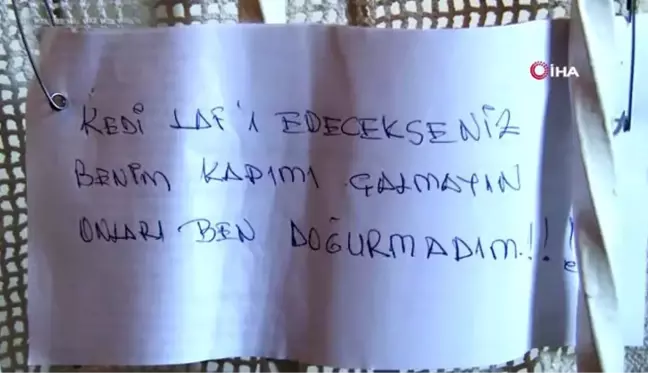 İHA
KEDİ LAF'I EDECEKSENİZ
BENİM KAPIMI ÇALMAYIN
ONLARI BEN DOĞURMADIM.!!!